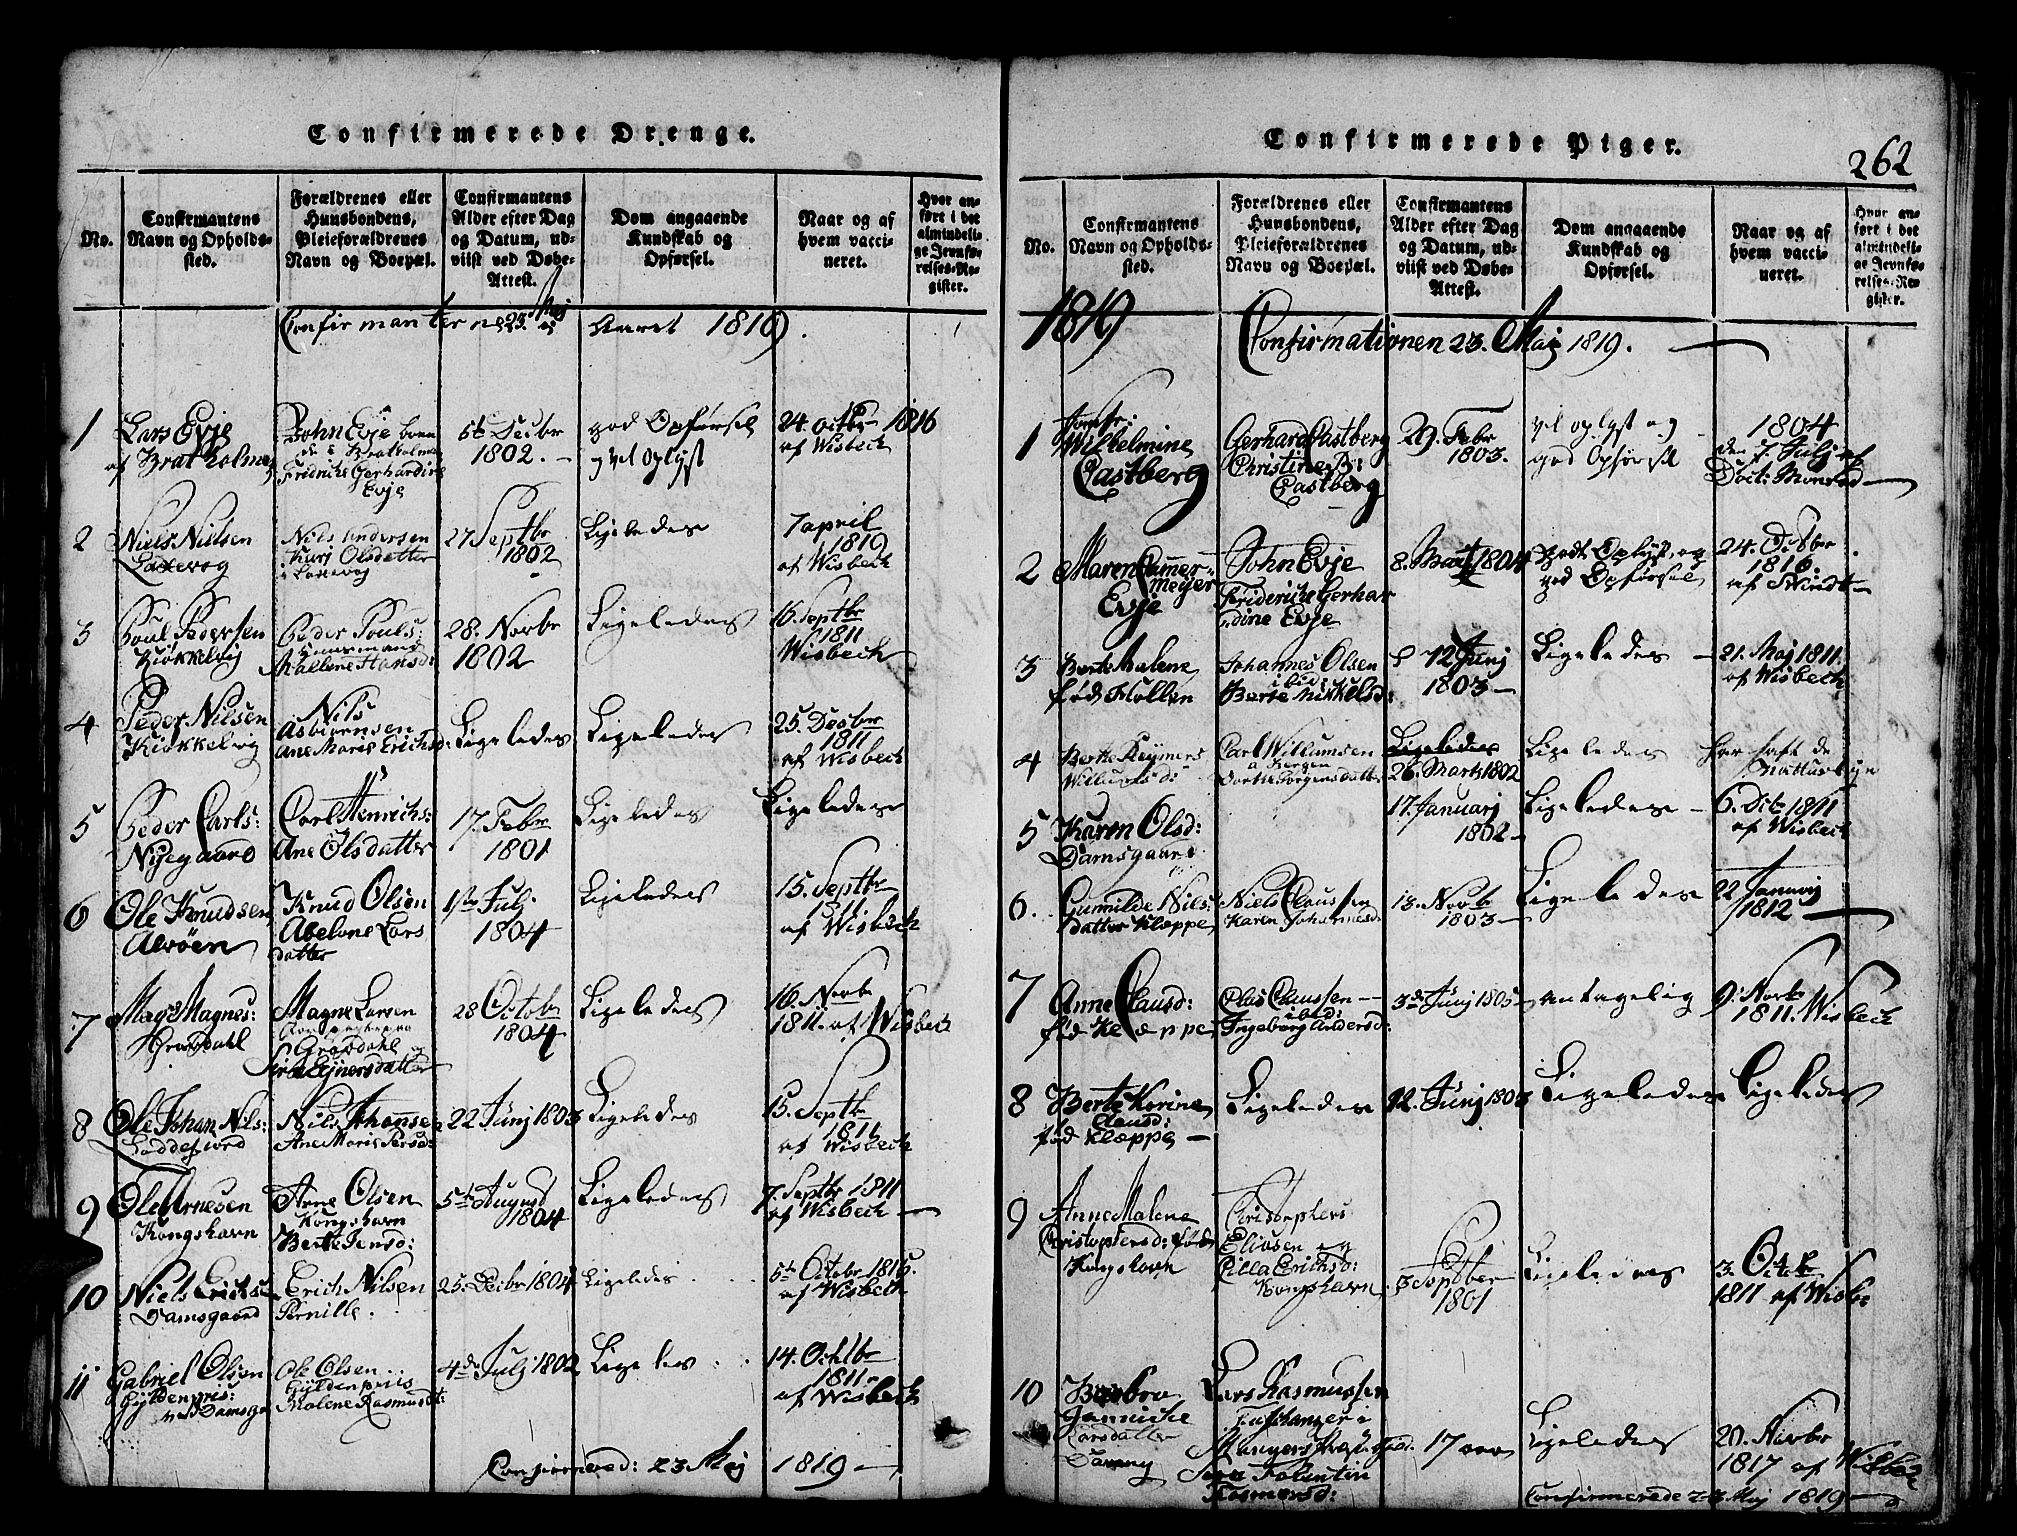 Confirmerede Drenge.
No.
Confirmantens
Navn og Opholds-
sted.
Forældrenes eller
Huusbondens,
Pleieforældrenes
Navn og Boepæl.
Confirmantens
Alder efter Dag
og Datum, ud-
viist ved Døbe-
Attest.
Dom angaaende
Kundskab og
Opførsel.
Naar og af
hvem vacci-
neret.
Hvor an-
ført i det
almindeli-
ge Jevnfø-
relses-Re-
gister.
Confirmanterne 23. Maj Aaret 1819.
1
Lars Evje
af Bratholmen
John Evje boen
de i Bratholmen
Fridriche Gerhardine
Evje
5te Decbr
1802.
god Opførsel
og vel oplyst
24 octbr 1816
af Wisbech
2
Niels Nielsen
Laxevog
Nils Andersen
Kari Olsdatter
i Laxevog
27 Septbr
1802
Ligeledes
7 april
1819
af Wisbech
3
Poul Pedersen
Kiøkkelvig
Peder Pouls:
Mallene Hansd:
28. Novbr
1802
Ligeledes
16. Septbr
1811
Wisbech
4
Peder Nilsen
Kiøkkelvig
Nils
Asbiørnsen
Ane Marie Erichsd:
Ligeledes
Ligeledes
25. Decbr
1811
af Wisbech
5
Peder Carls:
Nygaard
Carl Henrichs:
Ane Olsdatter
17. Febr
1801
Ligeledes
Ligeledes
6
Ole Knudsen
Alvøen
Knud Olsen
Abelone Lars
datter
1ste Julj
1804
Ligeledes
15. Septbr
1811
af Wisbech
7
Mags Magnes:
Græsdahl
Magne Larsen
Græsdahl og
Siri Ejnersdatter
28 Octobr
1804
Ligeledes
16. Novbr
1811. af Wisbech
8
Ole Johan Nils:
Loddefiord
Nils Johansen
Ane Maria Persd:
22 Junj 1803
Ligeledes
15. Septbr
1811
af Wisbech
9
Ole Arnesen
Kongshavn
Arne Olsen
Kongshavn
Berte Jensd:
5te August
1804
Ligeledes
7. Septbr 1811
af Wisbech
10
Niels Erichsen
Damsgaard
Erich Nilsen
Pernille.
25. Decbr 1804
Ligeledes
5te Octobr 1815.
af Wisbech
11
Gabriel Olsen
Gyldenpris:
ved Damsga
Ole Olsen
Gyldenpriis
Malene Rasmusdt:
4de Julj 1802
Ligeledes
14. Octbr
1811
af Wisbech
Confirmered: 23 Maj 1819
Confirmerede Piger.
262
No.
Confirmantens
Navn og Opholds-
sted.
Forældrenes eller
Huusbondens,
Pleieforældrenes
Navn og Boepæl.
Confirmantens
Alder efter Dag
og Datum, ud-
viist ved Døbe-
Attest.
Dom angaaende
Kundskab og
Opførsel.
Naar og af
hvem vacci-
neret.
Hvor an-
ført i det
almindeli-
ge Jevnfø-
relses-Re-
gister.
1819 Confirmationen 23. Maj 1819.
1
Jomfr:
Wilhelmine
Castberg
Gerhard Castberg
Christine
Castberg
29. Febr
1803.
vel oplyst og
god Opførsel
1804
den 7. Julj af
Doct: Monrad
2
Maren Camer-
meyer
Evje
John Evje
Frideriche Gerhar
dine Evje
8. Martj 1804
godt Oplyst, og
god Opførsel
24. Octbr
1816.
af
3
Berte Malene
fød Hollen
Johannes Olsen
ibid:
Berte Mikkelsd:
d 12 Junj
1803
Ligeledes
21. Maj 1811.
af Wisbech
4
Berthe Reymers
Willumsd:
Carl Willumsen
Dorthe Jørgensdatter
Ligeledes
26. Martj 1802
Ligeledes
har haft de
5
Karen Olsd:
Damsgaard
17. Januarj
1802
Ligeledes
6. Octbr 1811
af Wisbech
6.
Gunilde Nils:
datter Klæppe
Niels Claussen
Karen Johannesd:
13. Novbr
1803
Ligeledes
22 Januarj
1812
7
Anne Clausd:
fød Klæppe
Clas Claussen
ibid:
Ingeborg Andersd:
3de Junj 1805
antagelig
9. Novbr
1811. Wisbech
8
Berte Korine
Clausd:
fød Klæppe
Ligeledes
12. Junj 1803
Ligeledes
Ligeledes
9
Anne Malene
Christophersd: fød
Kongshavn
Christophers
Eliasen og
Cilla Erichsd:
Kongshavn
3 Septber
1801
Ligeledes
3. Octbr
1811 af Wisbe
10
Barbra
Jannicke
Larsdatter
Lars Rasmussen
i
Mangers Præstegd.
Folentin
Rasmusd:
17 aar
Ligeledes
20. Novbr
1817 af Wisbec
Confirmerede 23 Maj 1819